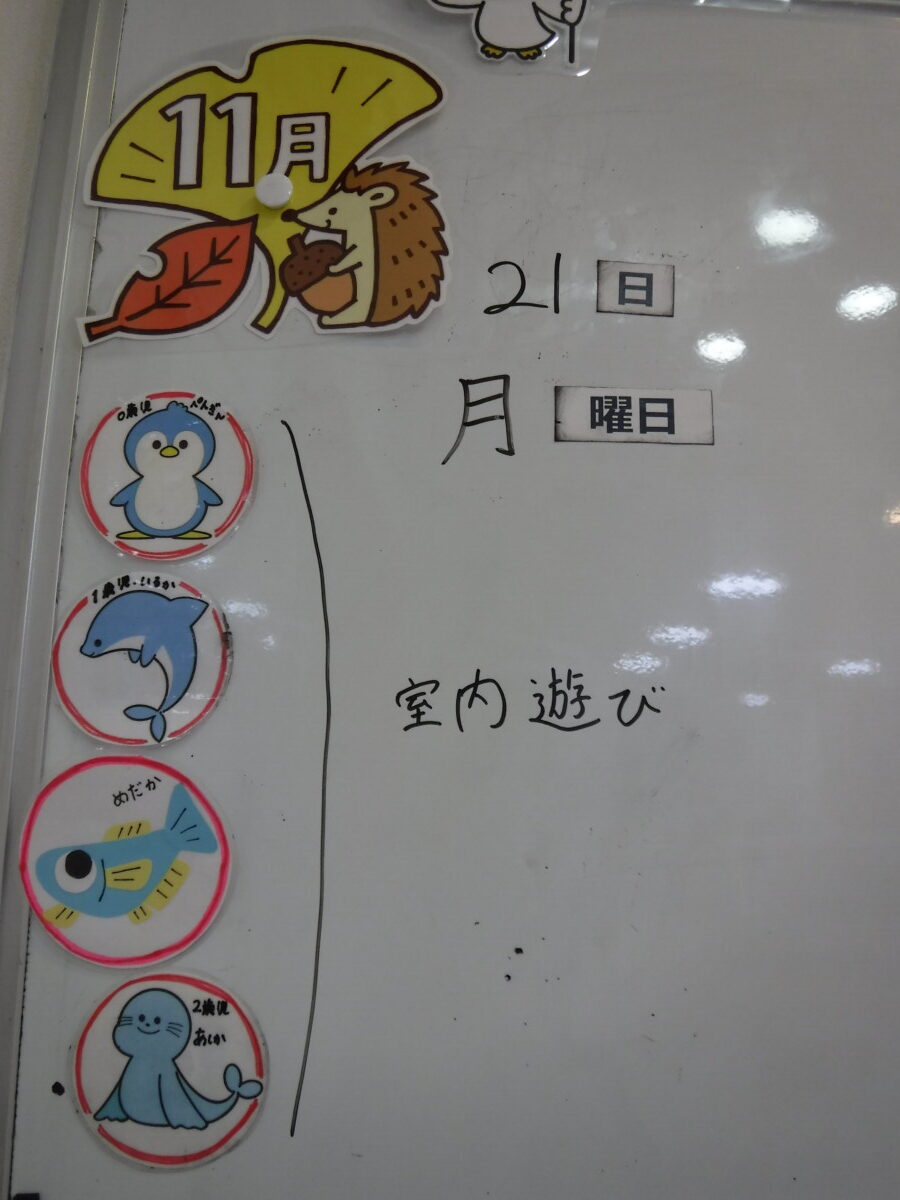 11月
21日
月曜日
0歳児 ぺんぎん
1歳児・いるか
室内遊び
めだか
2歳児
あしか